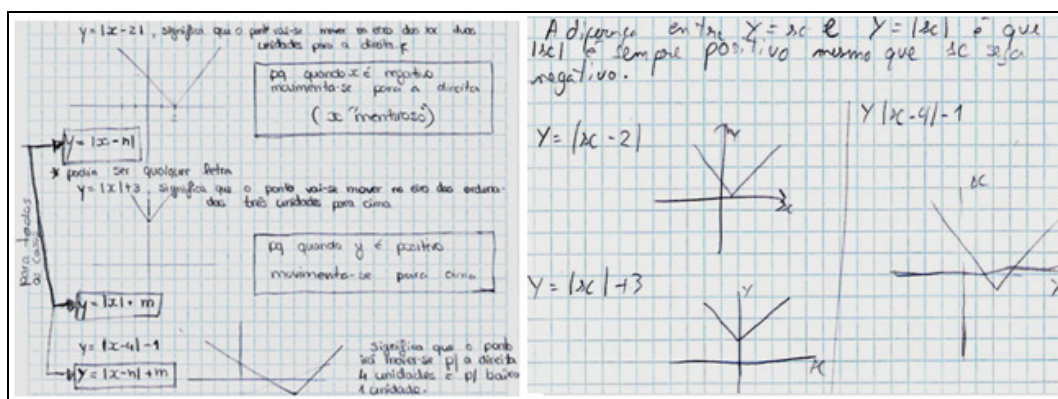 y = |x-2|, significa que o ponto vai-se mover no eixo dos xx duas
unidades para a direita
pq quando x é negativo
movimenta-se para a direita
(x "mentiroso")
y = |x-n|
* podia ser qualquer letra
y = |x|+3, significa que o ponto vai-se mover no eixo das ordena-
das três unidades para cima
pq quando y é positivo
movimenta-se para cima
para todos
os casos
y = |x| + m
y = |x-4|-1
y = |x-n|+m
significa que o ponto
irá mover-se p/ a direita
4 unidades e p/ baixo
1 unidade.
A diferença entre y = x e y = |x| é que
|x| é sempre positivo mesmo que x seja
negativo.
Y = |x-2|
y
x
Y = |x|+3
Y
x
Y |x-4|-1
x
y